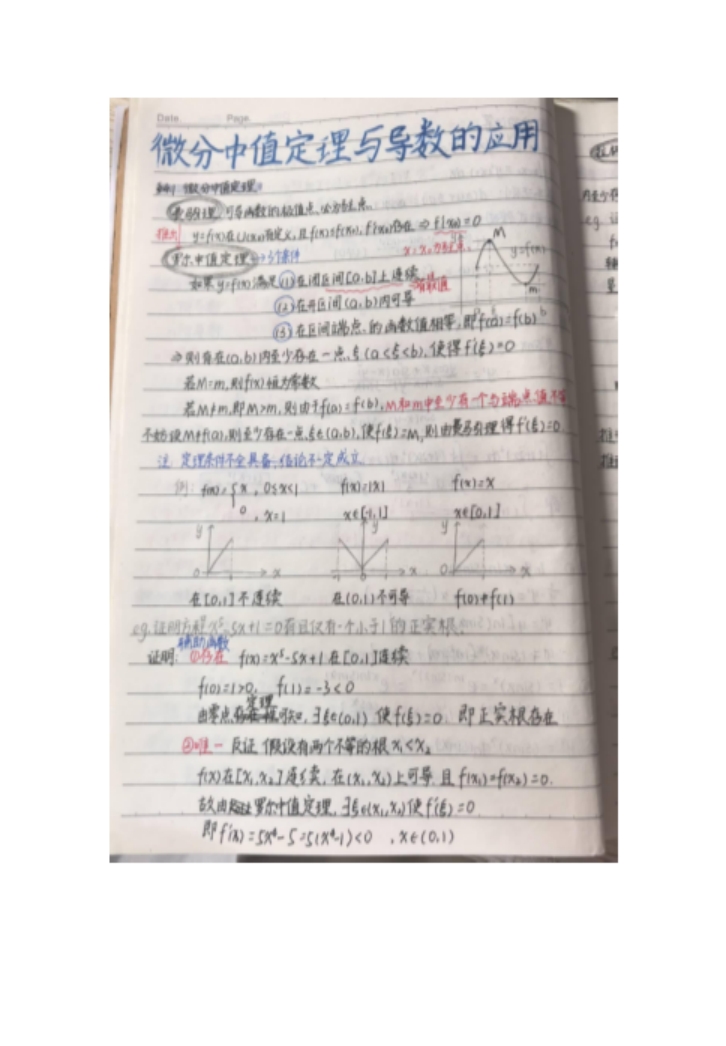 Date. Page.
微分中值定理与导数的应用
微分中值定理
费马引理 可导函数的极值点,必为驻点.
推出 y=f(x)在U(x₀)有定义,且f(x)≤f(x₀), f'(x₀)存在 ⇒ f'(x₀)=0
x=x₀为驻点.
罗尔中值定理 → 3个条件
如果y=f(x)满足 (1)在闭区间[a,b]上连续 有最值
(2)在开区间(a,b)内可导
(3)在区间端点的函数值相等,即f(a)=f(b)
M y=f(x) m b
⇒则有在(a,b)内至少存在一点ξ(a<ξ<b),使得f'(ξ)=0
若M=m,则f(x)恒为常数
若M≠m,即M>m,则由于f(a)=f(b),M和m中至少有一个与端点值不等
不妨设M≠f(a),则至少存在一点ξ∈(a,b),使f(ξ)=M,则由费马引理得f'(ξ)=0.
注 定理条件不全具备,结论不一定成立
例: f(x)={x, 0≤x<1 f(x)=|x| f(x)=x
0, x=1 x∈[-1,1] x∈[0,1]
y y y
0 x 0 x 0 x
在[0,1]不连续 在(0,1)不可导 f(0)≠f(1)
eg.证明方程x⁵-5x+1=0有且仅有一个小于1的正实根.
辅助函数
证明: ①存在 f(x)=x⁵-5x+1在[0,1]连续
f(0)=1>0, f(1)=-3<0
定理
由零点 可知,∃ξ∈(0,1) 使f(ξ)=0 即正实根存在
②唯一 反证 假设有两个不等的根x₁<x₂
f(x)在[x₁,x₂]连续,在(x₁,x₂)上可导,且f(x₁)=f(x₂)=0.
故由 罗尔中值定理,∃ξ∈(x₁,x₂)使f'(ξ)=0
即f'(x)=5x⁴-5=5(x⁴-1)<0 ,x∈(0,1)